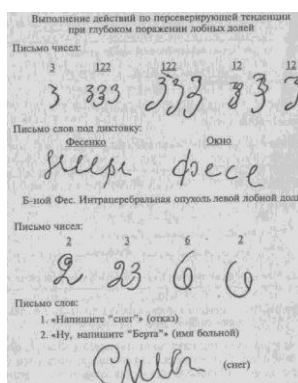 Выполнение действий по персеверирующей тенденции
при глубоком поражении лобных долей
Письмо чисел:
3 122 122 12 12
3 333 333 33 3
Письмо слов под диктовку:
Фесенко Окно
фесе
Б-ной Фес. Интрацеребральная опухоль левой лобной
Письмо чисел:
2 3 6 2
2 23 6 6
Письмо слов:
1. «Напишите "снег"» (отказ)
2. «Ну, напишите "Берта"» (имя больной)
(снег)